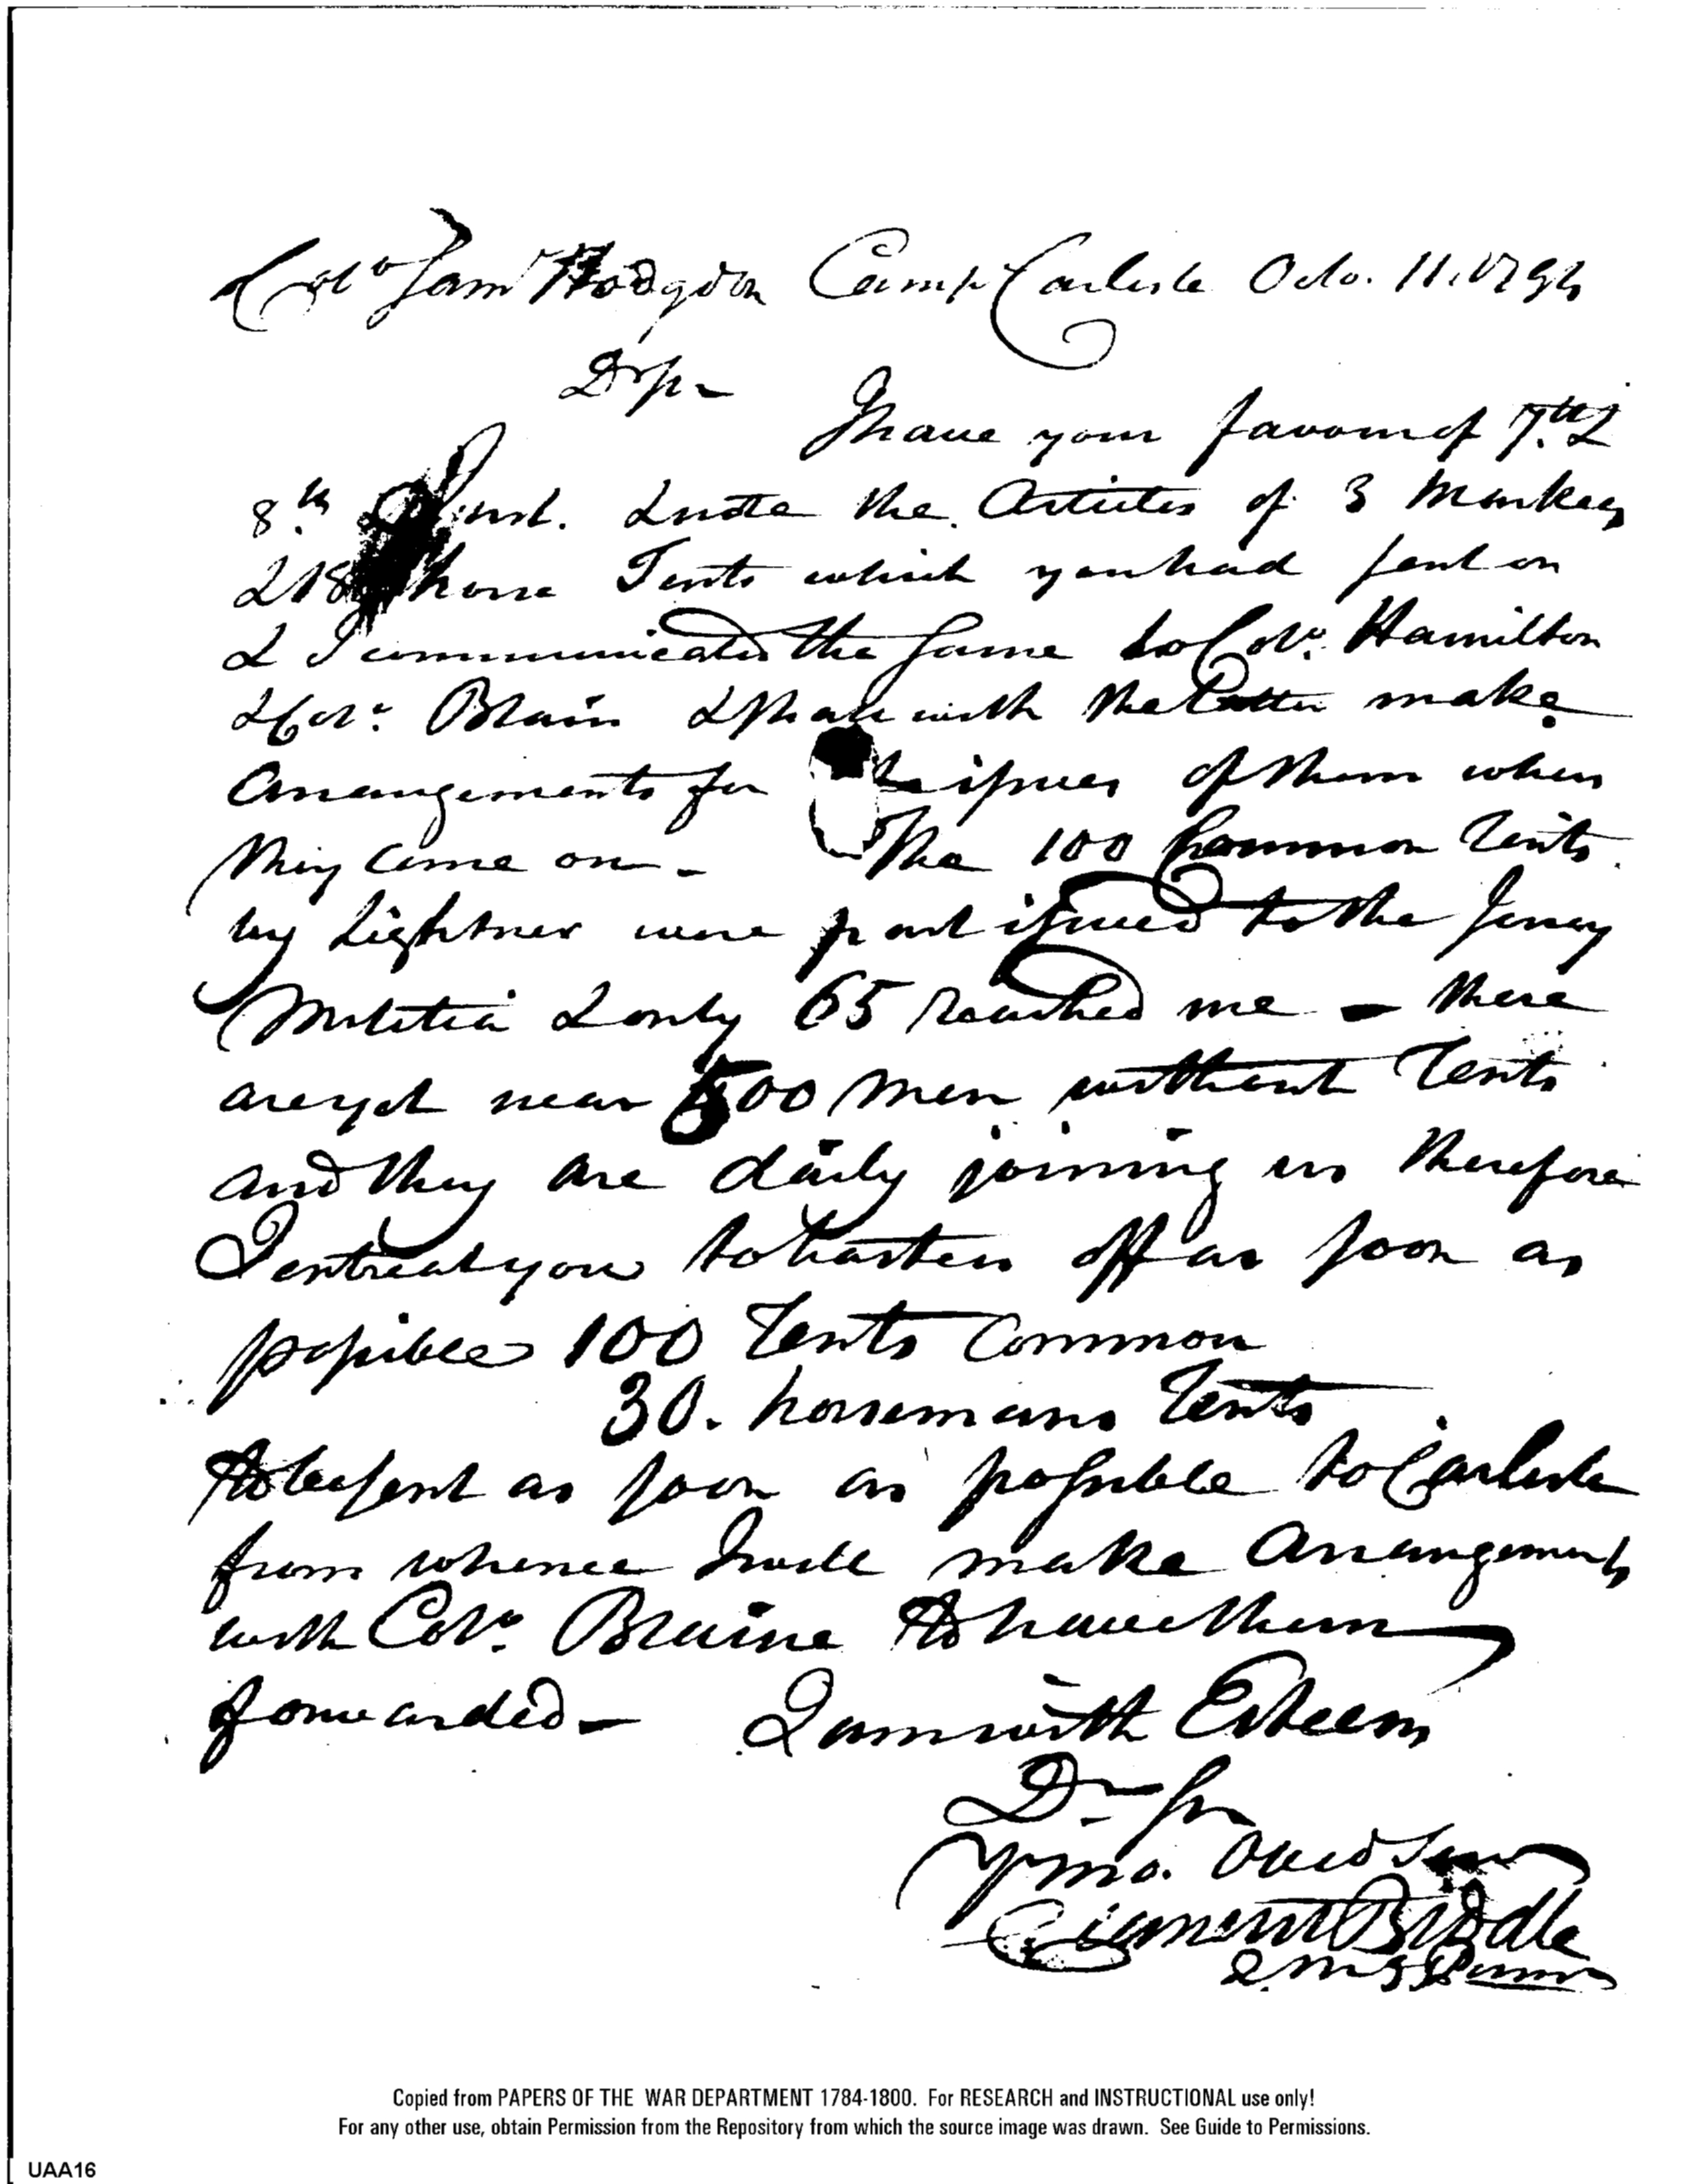 Colo Saml Hodgdon Camp Carlisle Octo. 11. 1794
Dr Sir
I have your favour of 7th &
8th Inst. & note the Articles of 3 Markees
& 18 horse Tents which you had sent on
& I communicated the same to Colo. Hamilton
& Colo. Blain & shall with the latter make
Arrangements for the issues of them when
they come on - The 100 Common Tents
by Lightner were part issued to the Jersey
Militia & only 65 reached me - there
are yet near 500 Men without Tents
and they are daily joining us therefore
I entreat you to hasten off as soon as
possible 100 Tents Common
30. horsemans Tents
to be sent as soon as possible to Carlisle
from whence I will make Arrangements
with Colo. Blaine to have them
forwarded - I am with Esteem
Dr Sir
Yr mo. Obed Serv
Clement Biddle
Q M G Penns
Copied from PAPERS OF THE WAR DEPARTMENT 1784-1800. For RESEARCH and INSTRUCTIONAL use only!
For any other use, obtain Permission from the Repository from which the source image was drawn. See Guide to Permissions.
UAA16